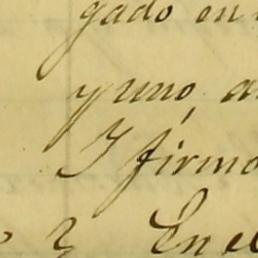 gado en
y uno, a
I firmo
y En el